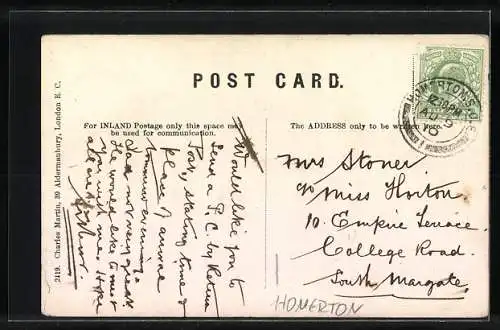 POST CARD.
For INLAND Postage only this space may
be used for communication.
The ADDRESS only to be written here.
2419. Charles Martin, 39 Aldermanbury, London E.C.
HOMERTON S.O
12.30 PM
Would like you to
Send a P.C by Return
Post, stating time &
place of arrival
tomorrow evening
Dad not very great
He would like to meet
you with me. Hope
all are
Mrs Stoner
c/o Miss Horton.
10. Empire Terrace.
College Road.
South Margate.
HOMERTON